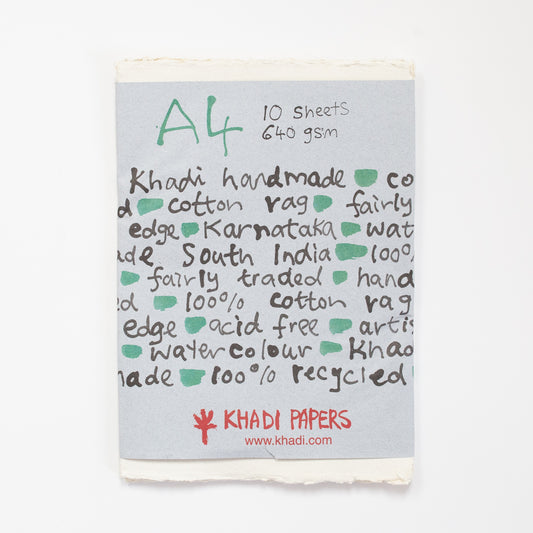 A4 10 sheets
640 gsm
Khadi handmade co
d cotton rag fairly
edge Karnataka wat
ade South India 100%
fairly traded hand
ed 100% cotton rag
edge acid free artis
watercolour Khad
made 100% recycled
KHADI PAPERS
www.khadi.com